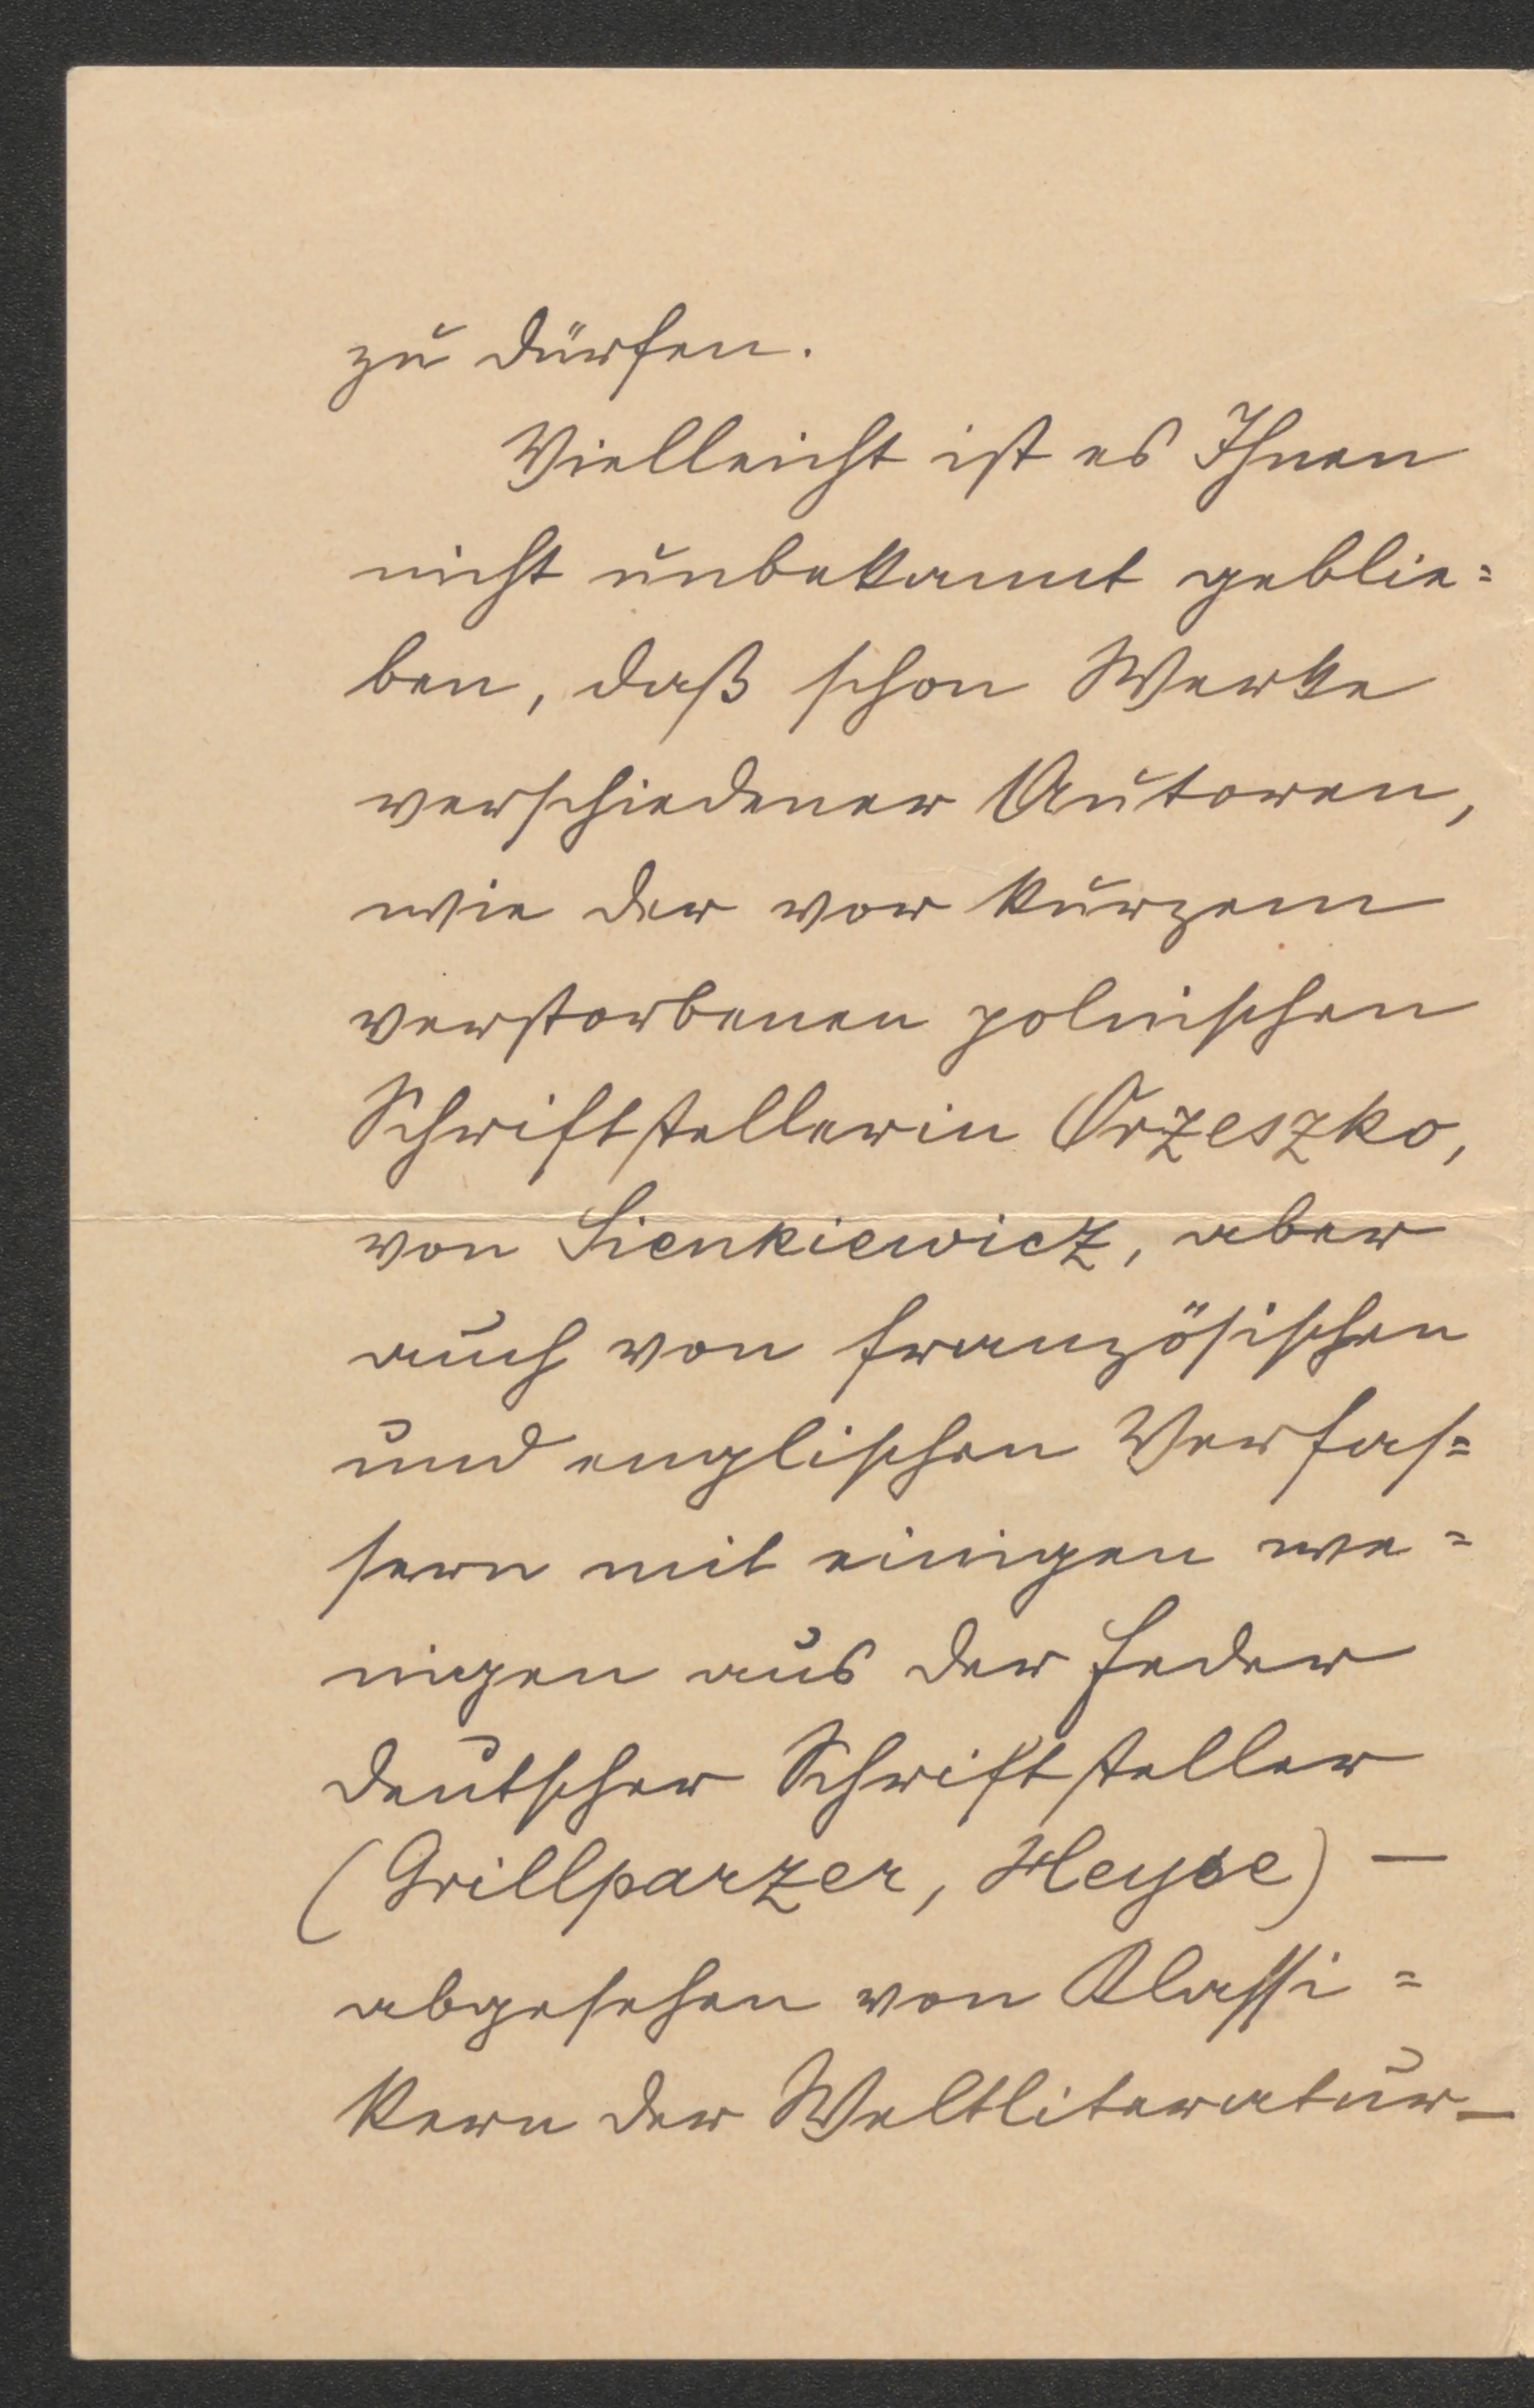 zu dürfen.
Vielleicht ist es Ihnen
nicht unbekannt geblie=
ben, daß schon Werke
verschiedener Autoren,
wie der vor kurzem
verstorbenen polnischen
Schriftstellerin Orzeszko,
von Sienkiewicz, aber
auch von französischen
und englischen Verfas=
sern mit einigen we=
nigen aus der Feder
deutscher Schriftsteller
(Grillparzer, Heyse) —
abgesehen von Klassi=
kern der Weltliteratur —